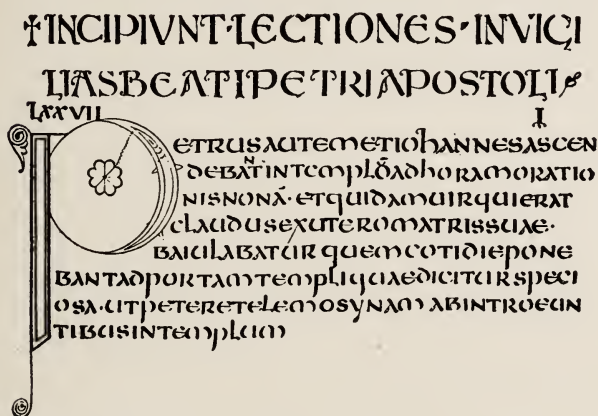 †INCIPIVNT·LECTIONES·INVIGI
LIASBEATIPETRIAPOSTOLI
LXXVII I
PETRUSAUTEMETIOHANNESASCEN
DEBANTINTEMPLŌADHORAMORATIO
NISNONĀ·ETQUIDAMUIRQUIERAT
CLAUDUSEXUTEROMATRISSUAE·
BAIULABATURQUEMCOTIDIEPONE
BANTADPORTAMTEMPLIQUAEDICITURSPECI
OSA·UTPETERETELEMOSYNAMABINTROEUN
TIBUSINTEMPLUM